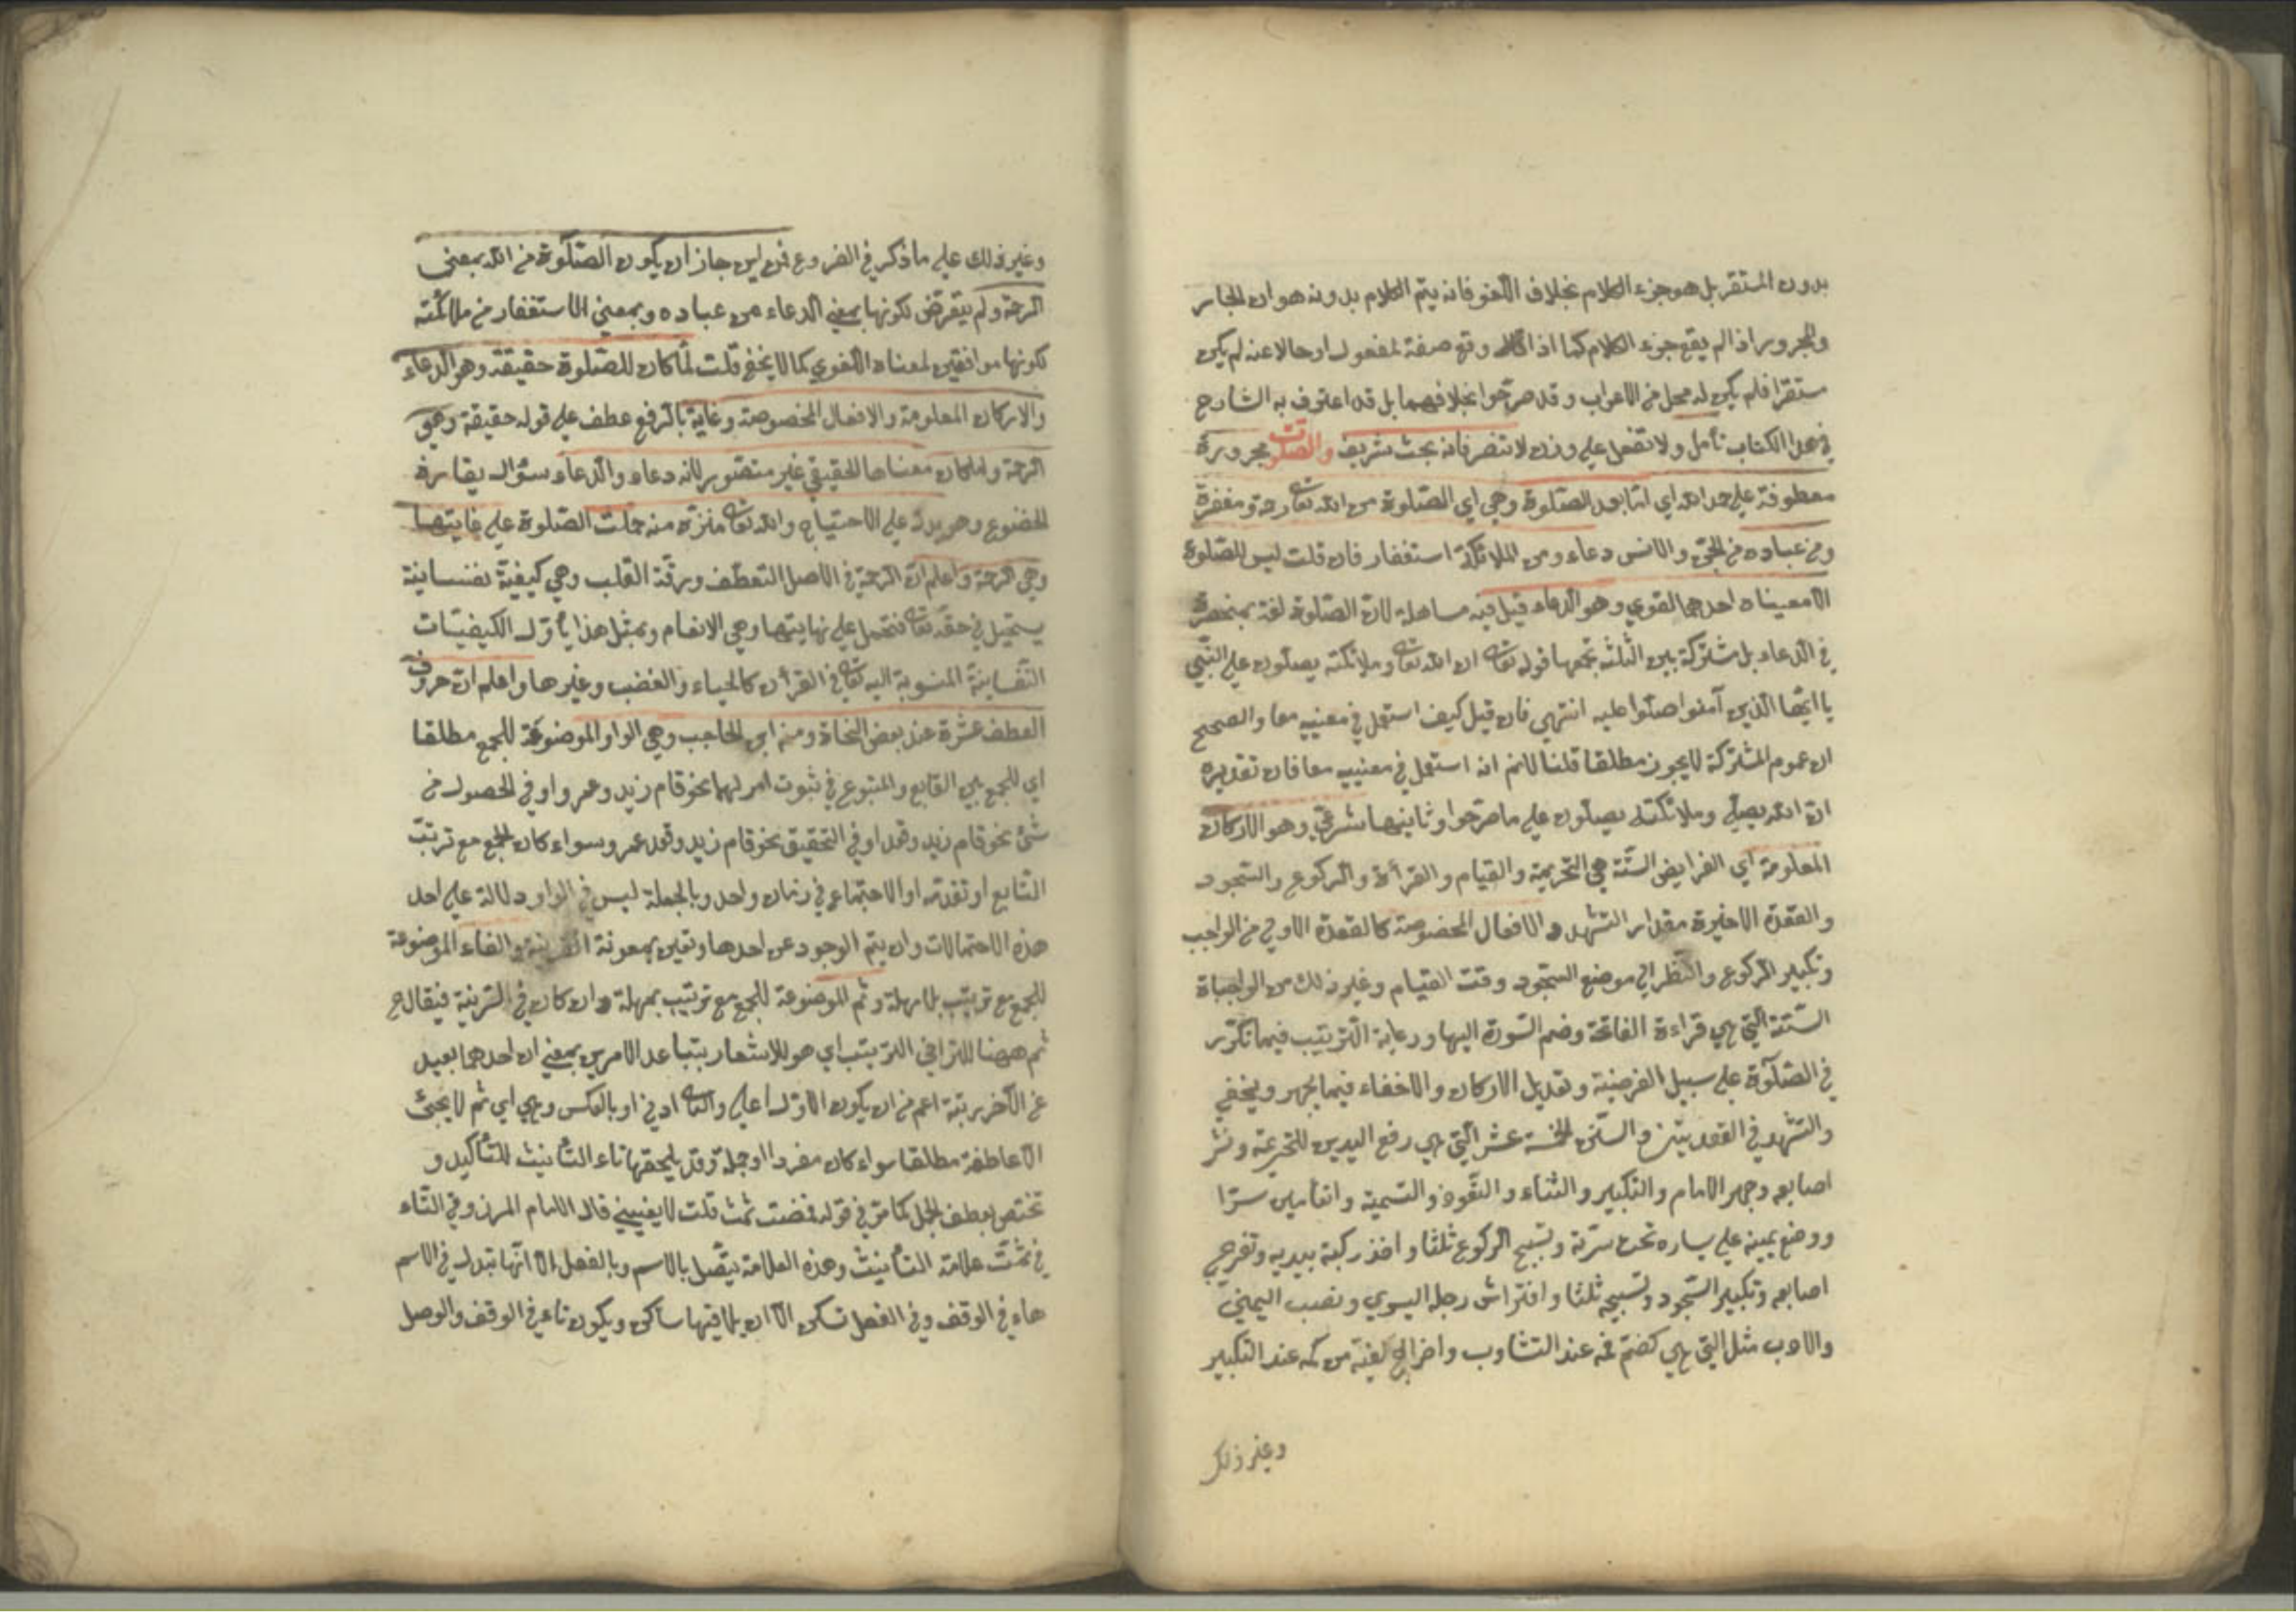 بدون المستقر بل هو جزء الكلام بخلاف اللغو فانه يتم الكلام بدونه هو ان الجار
والمجرور اذا لم يقع جزء الكلام كما اذا وقع صفة لمفعول او حالا عنه لم يكن
مستقرا فلم يكن له محل من الاعراب وقد صرحوا بخلافهما بل قد اعترف به الشارح
في هذا الكتاب تأمل ولا تغفل على وزن لا تنصر فانه بحث شريف والصلوة مجرورة
معطوفة على حمد الله اي اما بعد الصلوة وهي اي الصلوة من الله تعا رحمة ومغفرة
ومن عباده من الجن والانس دعاء ومن الملائكة استغفار فان قلت ليس للصلوة
الا معنيان احدهما لغوي وهو الدعاء قيل فيه مساهلة لان الصلوة لغة بمنحصرة
في الدعاء بل مشتركة بين الثلثة بجمعها قوله تعا ان الله تعا وملائكته يصلون على النبي
يا ايها الذين آمنوا صلوا عليه انتهى فان قيل كيف استعمل في معنييه معا والصحيح
ان عموم المشتركة لا يجوز مطلقا قلنا لانم انه استعمل في معنييه معا فان تقديره
ان الله يصلي وملائكته يصلون على ما صرحوا وثانيهما شرعي وهو الاركان
المعلومة اي الفرايض الستة هي التحريمة والقيام والقرأة والركوع والسجود
والقعدة الاخيرة مقدار التشهد والافعال المخصوصة كالقعدة الاولى من الواجب
وتكبير الركوع والنظر الى موضع السجود وقت القيام وغير ذلك من الواجباة
الستة التي هي قراءة الفاتحة وضم السورة اليها ورعاية الترتيب فيما تكرر
في الصلوة على سبيل الفرضية وتعديل الاركان والاخفاء فيما يجهر ويخفي
والتشهد في القعدتين والسنن الخمسة عشر التي هي رفع اليدين للتحريمة ونشر
اصابعه وجهر الامام والتكبير والثناء والتعوذ والتسمية واتأمين سرا
ووضع يمينه على يساره تحت سرته وتسبيح الركوع ثلثا واخذ ركبة بيديه وتفرجي
اصابعه وتكبير السجود وتسبيحه ثلثا وافتراش رجله اليسري ونصب اليمني
والادب مثل التي هي كضم فمه عند التثاوب واخراج كفيه من كمه عند التكبير
وغير ذلك
وغير ذلك على ما ذكر في الفروع فن ليس جاز ان يكون الصلوة من الله بمعنى
الرحمة ولم يتعرض لكونها بمعني الدعاء من عباده وبمعني الاستغفار من ملائكته
لكونها موافقين لمعناه اللغوي كما لا يخفي قلت لما كان للصلوة حقيقة وهو الدعاء
والاركان المعلومة والافعال المخصوصة وغاية بالرفع عطف على قوله حقيقة وهي
الرحمة ولما كان معناها الحقيقي غير متصور لانه دعاء والدعاء سؤال يقارنه
الخضوع وهو يدل على الاحتياج والله تعا منزه منه حملت الصلوة على غايتها
وهي الرحمة واعلم ان الرحمة في الاصل التعطف ورقة القلب وهي كيفية نفسانية
يستحيل في حقه تعا فتحمل على نهايتها وهي الانعام وبمثل هذا يأول الكيفيات
النفسانية المنسوبة اليه تعا في القرأن كالحياء والغضب وغيرها واعلم ان حروف
العطف عشرة عند بعض النحاة ومنه ابن الحاجب وهي الواو الموضوعة للجمع مطلقا
اي للجمع بين التابع والمتبوع في ثبوت امر لهما نحو قام زيد وعمرو او في الحصول من
شئ نحو قام زيد وقعد او في التحقيق نحو قام زيد وقعد عمرو سواء كان الجمع مع ترتب
التابع او تقدمه او الاجتماع في زمان واحد وبالجملة ليس في الواو دلالة على احد
هذه الاحتمالات وان يتم الوجود عن احدها وتعين بمعونة القرينة والفاء الموضوعة
للجمع مع ترتيب بلا مهلة وثم الموضوعة للجمع مع ترتيب بمهلة وان كان في الترتيبة فيقال ح
ثم ههنا للتراخي الترتيب اي هو للاشعار بتباعد الامرين بمعني ان احدهما بعيد
عن الآخر برتبة اعم من ان يكون الاول اعلى والثاني ادنى او بالعكس وهي اي ثم لا يجئ
الا عاطفة مطلقا سواء كان مفردا او جملة وقد يلحقها تاء التأنيث للتأكيد و
تختص بعطف الجمل كما مر في قوله فمضت ثمت قلت لا يعنيني قال الامام المرز وفي التاء
في ثمت علامة التأنيث وهذه العلامة يتصل بالاسم وبالفعل الا انها تبدل في الاسم
هاء في الوقف وفي الفعل تسكن الا ان يلاقيها ساكن ويكون تاء في الوقف والوصل